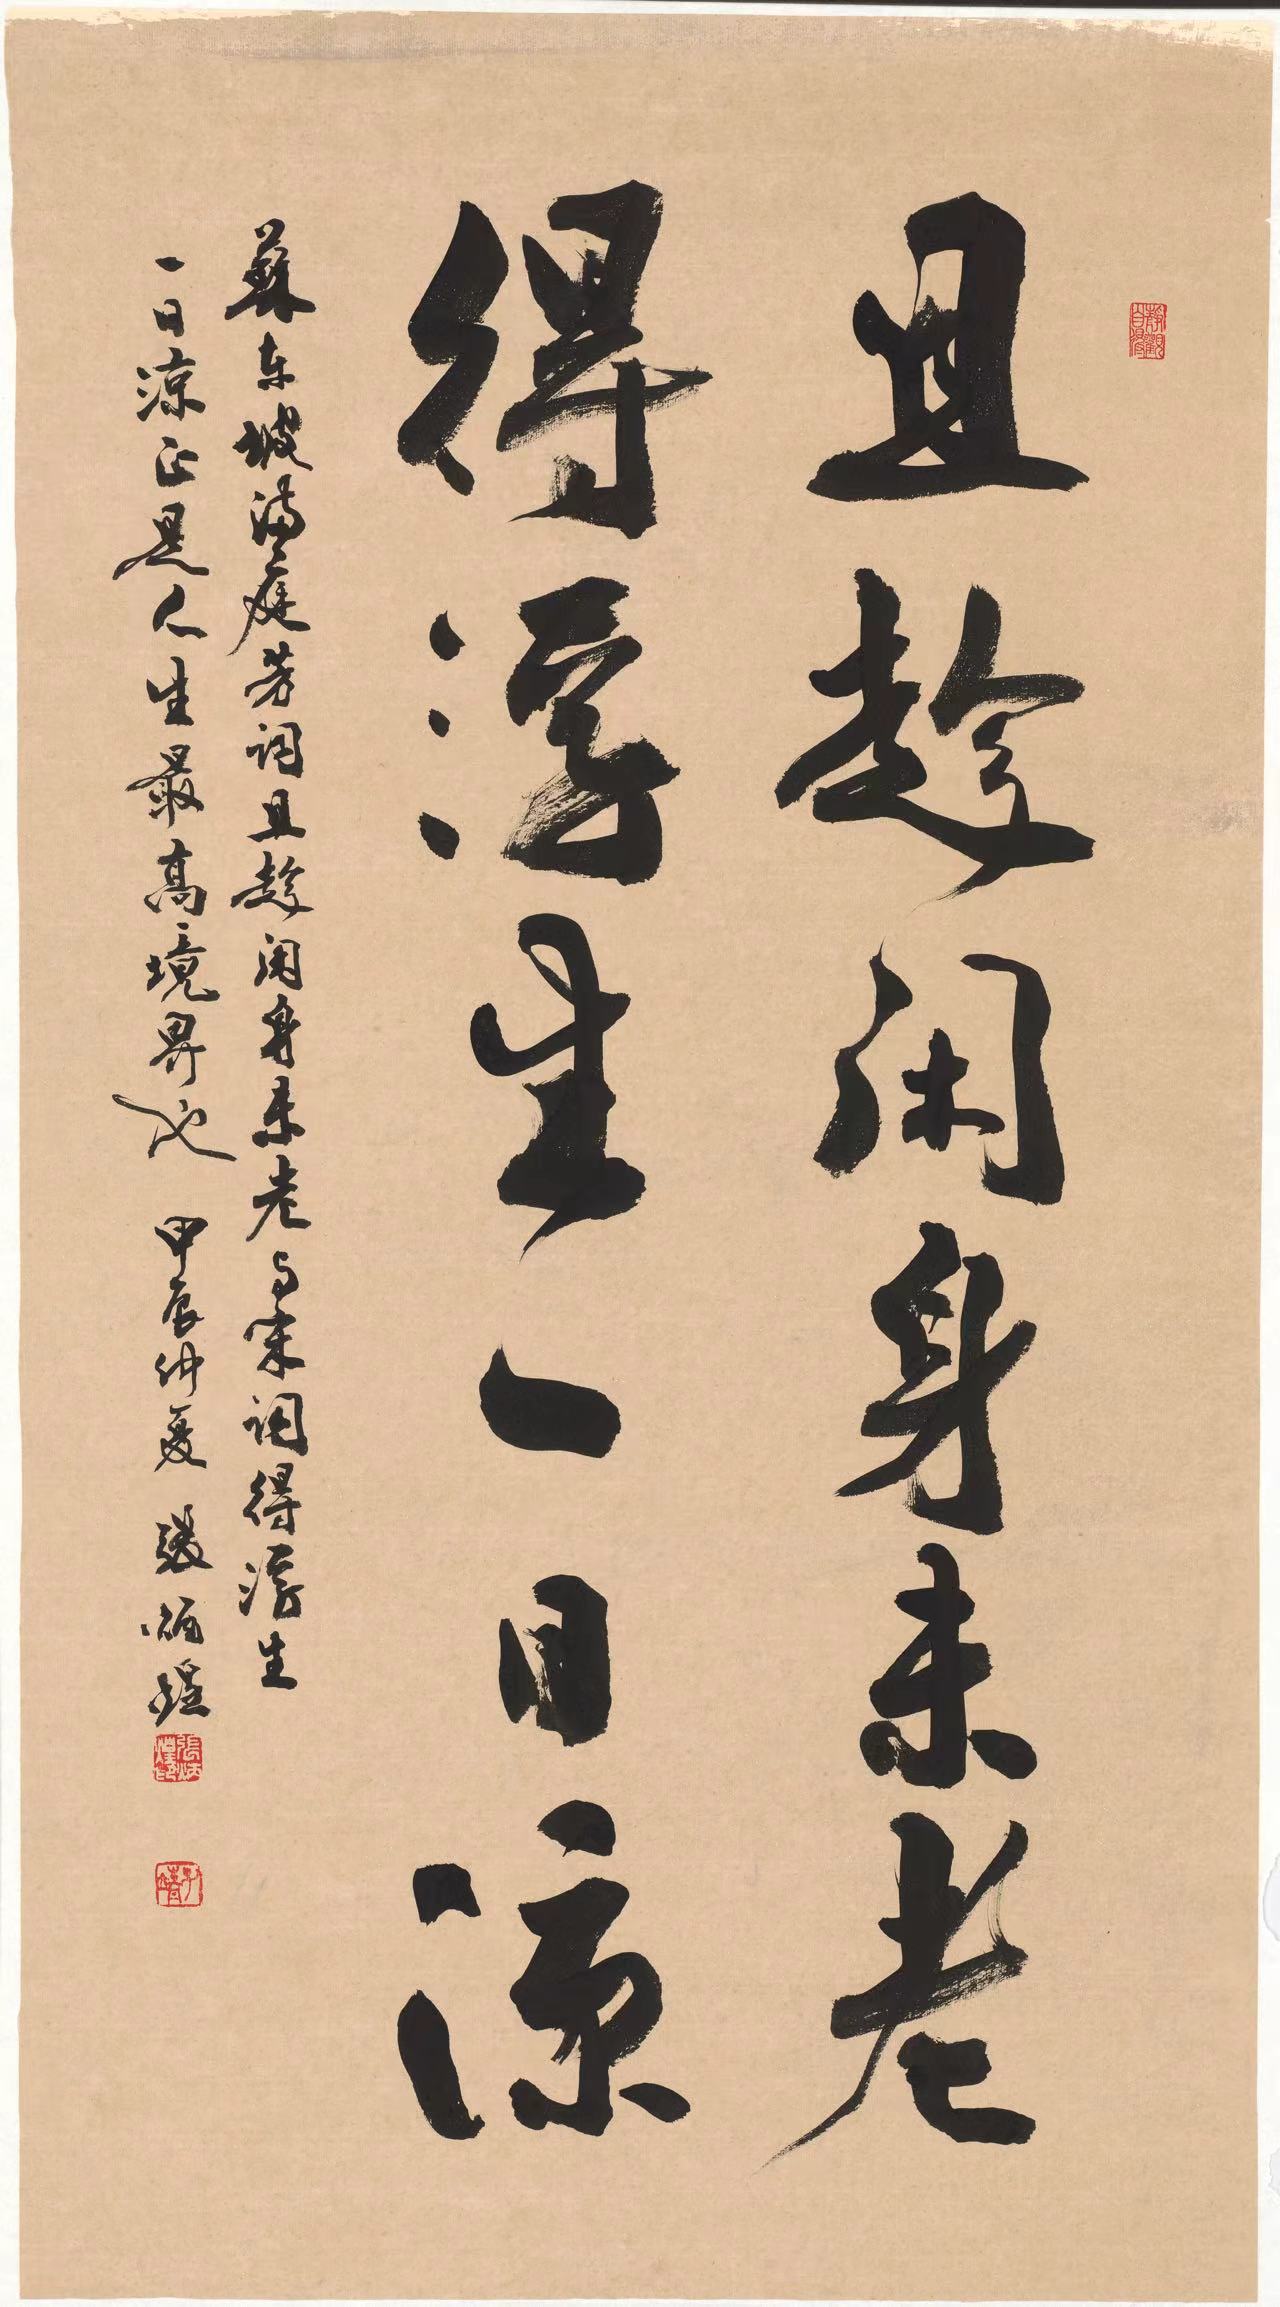 且趁闲身未老
得浮生一日凉
蘇东坡满庭芳词且趁闲身未老与宋词得浮生
一日凉正是人生最高境界也 甲辰仲夏 張炳煌
張炳煌印